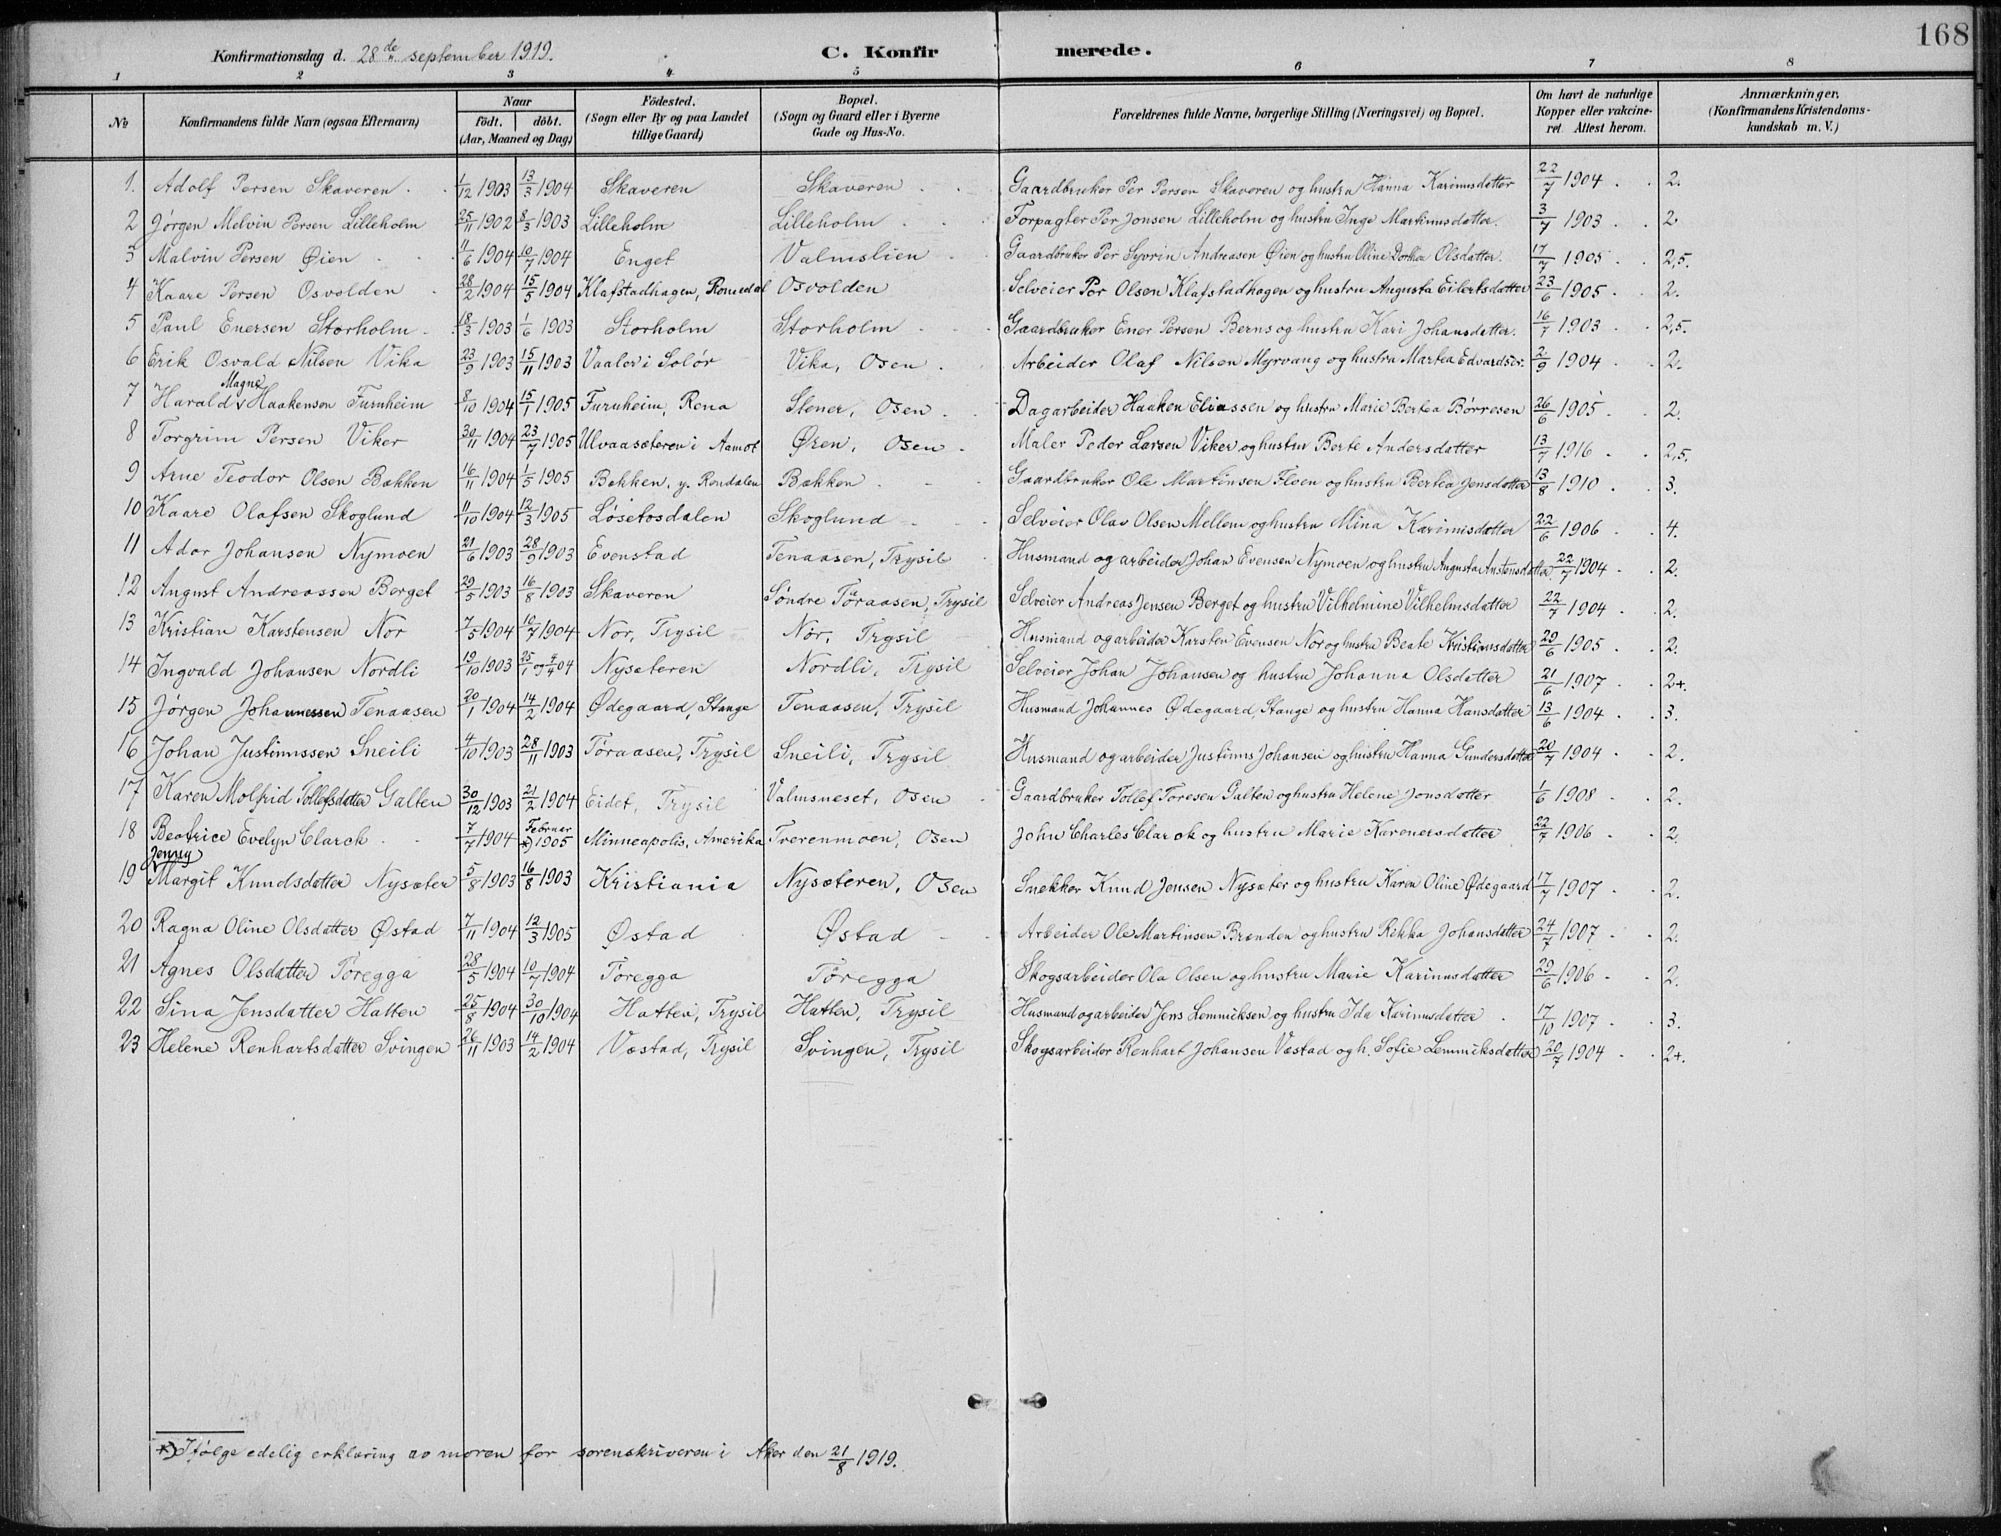 168
Konfirmationsdag d. 28de september 1919. C. Konfirmerede.
1 2 3 4 5 6 7 8
No Konfirmandens fulde Navn (ogsaa Efternavn) Naar födt. döbt. (Aar, Maaned og Dag) Födested. (Sogn eller By og paa Landet tillige Gaard) Bopæl. (Sogn og Gaard eller i Byerne Gade og Hus-No. Forældrenes fulde Navne, borgerlige Stilling (Næringsvei) og Bopæl. Om havt de naturlige Kopper eller vakcineret. Attest herom. Anmærkninger. (Konfirmandens Kristendomskundskab m. V.)
1. Adolf Persen Skaveren 1/12 1903 13/3 1904 Skaveren Skaveren Gaardbruker Per Persen Skaveren og hustru Hanna Karinusdatter 22/7 1904 2.
2 Jørgen Melvin Persen Lilleholm 25/11 1902 8/3 1903 Lilleholm Lilleholm Forpagter Per Jonsen Lilleholm og hustru Inge Martinusdatter. 3/7 1903 2
3 Malvin Persen Øien 11/6 1904 10/7 1904 Enget Valmslien Gaardbruker Per Syvrin Andreasen Øien og hustru Oline Dorthea Olsdatter. 17/7 1905 2,5.
4 Kaare Persen Osvolden 28/2 1904 15/5 1904 Klafstadhagen, Romedal Osvolden Selveier Per Olsen Klafstadhagen og hustru Augusta Eilertsdatter 23/6 1905 2.
5 Paul Enersen Storholm 18/3 1903 1/6 1903 Storholm Storholm Gaardbruker Ener Persen Berns og hustru Kari Johansdatter. 16/7 1903 2,5.
6 Erik Osvald Nilsen Vika 23/9 1903 15/11 1903 Vaaler i Solør Vika, Osen Arbeider Olaf Nilsen Myrvang og hustru Martea Edvardsdr. 2/9 1904 2.
7 Harald Magne Haakensen Furuheim 8/10 1904 15/1 1905 Furuheim, Rena Slener, Osen Dagarbeider Haaken Eliassen og hustru Marie Bertea Børresen 26/6 1905 2.
8 Torgrim Persen Viker 30/11 1904 23/7 1905 Ulvaasæteren i Aamot Øren, Osen Maler Peder Larsen Viker og hustru Berte Andersdatter 13/7 1916 2,5.
9 Arne Teodor Olsen Bækken 16/11 1904 1/5 1905 Bekken, y. Rendalen Bækken Gaardbruker Ole Martinsen Floen og hustru Bertea Jensdatter 13/8 1910 3.
10 Kaare Olafsen Skoglund 11/10 1904 12/3 1905 Løsetosdalen Skoglund Selveier Olav Olsen Mellem og hustru Mina Karinusdatter 22/6 1906 4.
11 Ador Johansen Nymoen 21/6 1903 28/9 1903 Evenstad Tenaasen, Trysil Husmand og arbeider Johan Evensen Nymoen og hustru Augusta Austensdatter 22/7 1904 2.
12 August Andreassen Berget 29/5 1903 16/8 1903 Skaveren Søndre Tøraasen, Trysil Selveier Andreas Jensen Berget og hustru Vilhelmine Vilhelmsdatter 22/7 1904 2.
13 Kristian Karstensen Nor 7/5 1904 10/7 1904 Nor, Trysil Nor, Trysil Husmand og arbeider Karsten Evensen Nor og hustru Beate Kristiansdatter 29/6 1905 2.
14 Ingvald Johansen Nordli 19/10 1903 25/1 og 4/4 04 Nysæteren Nordli, Trysil Selveier Johan Johansen og hustru Johanna Olsdatter 21/6 1907 2+.
15 Jørgen Johannessen Tenaasen 20/1 1904 14/2 1904 Ødegaard, Stange Tenaasen, Trysil Husmand Johannes Ødegaard, Stange og hustru Hanna Hansdatter 13/6 1904 3.
16 Johan Justinussen Sneili 4/10 1903 28/11 1903 Tøraasen, Trysil Sneili, Trysil Husmand og arbeider Justinus Johansen og hustru Hanna Gundersdatter 20/7 1904 2.
17 Karen Molfrid Tollefsdatter Galten 30/12 1903 21/2 1904 Eidet, Trysil Valmsneset, Osen Gaardbruker Tollef Toresen Galten og hustru Helene Jonsdatter 1/6 1908 2.
18 Beatrice Evelyn Clarck 7/7 1904 Februar *) 1905 Minneapolis, Amerika Tverenmoen, Osen John Charles Clarck og hustru Marie Karenersdatter 22/7 1906 2.
19 Jenny Margit Knudsdatter Nysæter 5/8 1903 16/8 1903 Kristiania Nysæteren, Osen Snekker Knud Jensen Nysæter og hustru Karen Oline Ødegaard 17/7 1907 2.
20 Ragna Oline Olsdatter Østad 7/11 1904 12/3 1905 Østad Østad Arbeider Ole Martinsen Brenden og hustru Rekka Johansdatter 24/7 1907 2.
21 Agnes Olsdatter Tøregga 28/5 1904 10/7 1904 Tøregga Tøregga Skogsarbeider Ola Olsen og hustru Marie Karinusdatter 29/6 1906 2.
22 Sina Jensdatter Hatten 25/8 1904 30/10 1904 Hatten, Trysil Hatten, Trysil Husmand og arbeider Jens Lemmiksen og hustru Ida Karinusdatter 17/10 1907 3.
23 Helene Renhartsdatter Svingen 26/11 1903 14/2 1904 Vestad, Trysil Svingen, Trysil Skogsarbeider Renhart Johansen Vestad og h. Sofie Lemmiksdatter 20/7 1904 2+.
*) Ifølge edelig erklæring av moren for sorenskriveren i Aker den 21/8 1919.